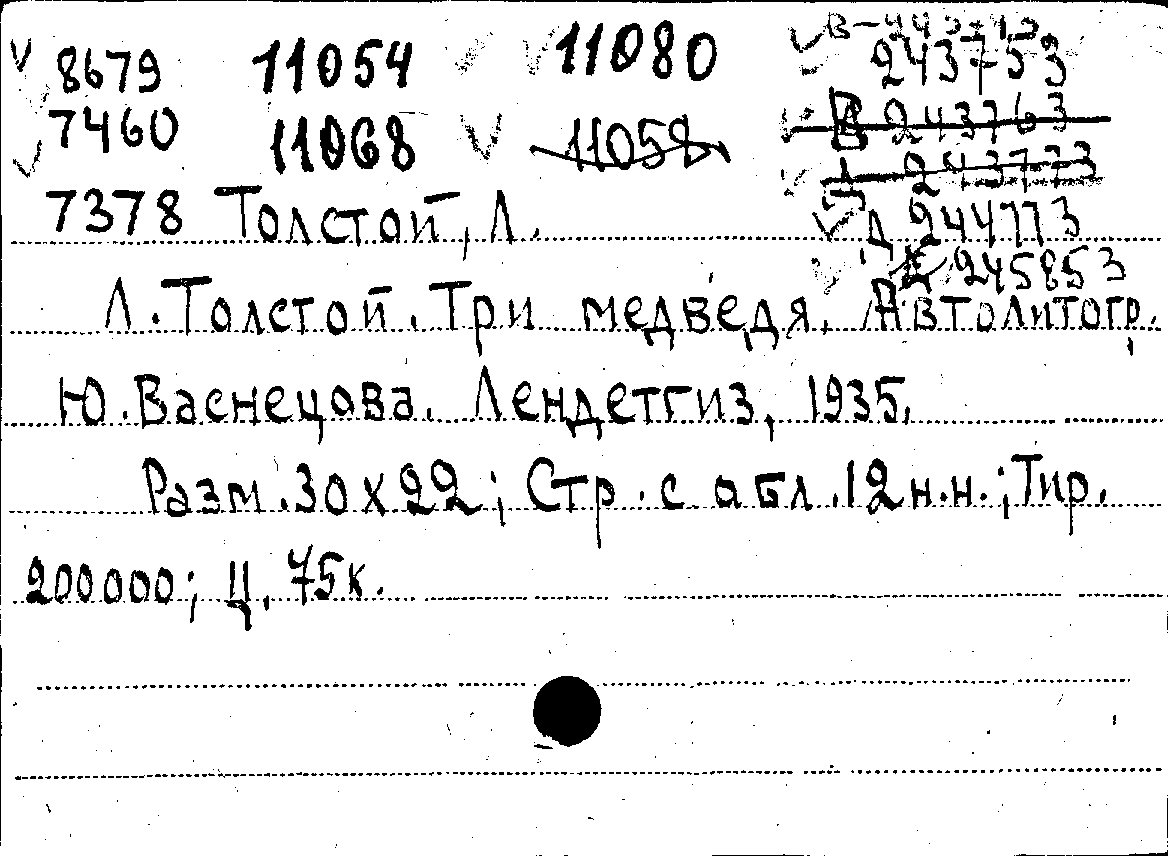 8679 11054 11080 243753
7460 11068 11058 В 243763
243773
7378 Толстой, Л. Д 244773
245853
Л. Толстой. Три медведя. Автолитогр.
Ю. Васнецова. Лендетгиз, 1935.
Разм. 30х22; Стр. с обл. 12 н.н.; Тир.
200000; Ц. 75к.